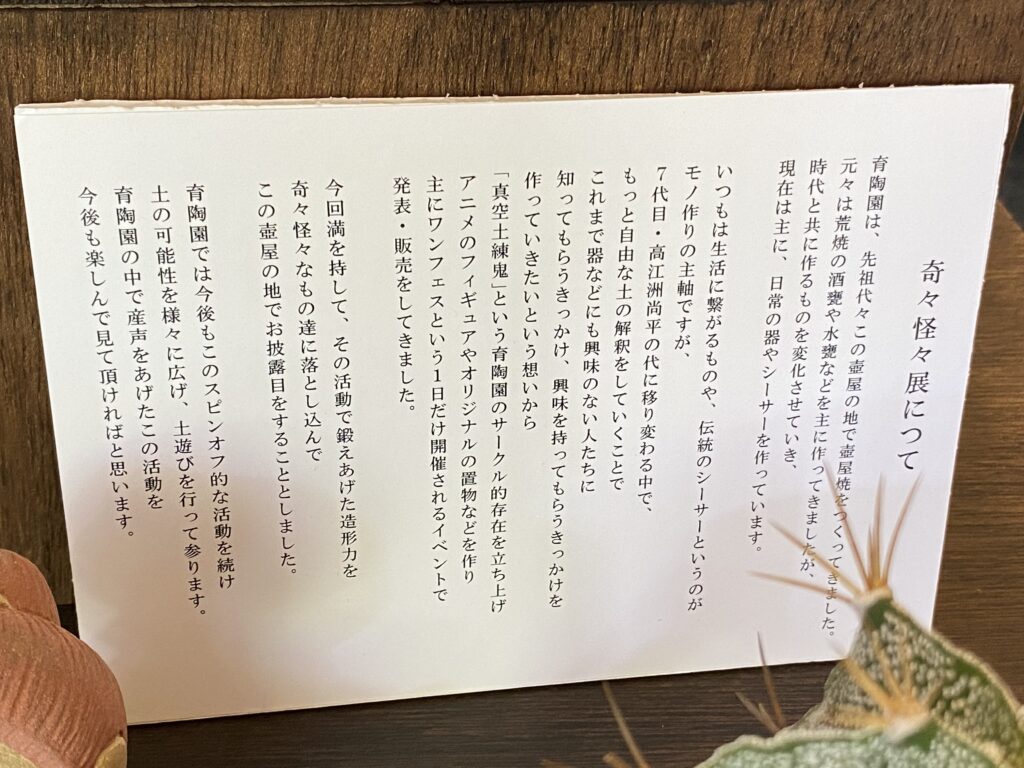 奇々怪々展につて
育陶園は、先祖代々この壺屋の地で壺屋焼をつくってきました。
元々は荒焼の酒甕や水甕などを主に作ってきましたが、
時代と共に作るものを変化させていき、
現在は主に、日常の器やシーサーを作っています。
いつもは生活に繋がるものや、伝統のシーサーというのが
モノ作りの主軸ですが、
7代目・高江洲尚平の代に移り変わる中で、
もっと自由な土の解釈をしていくことで
これまで器などにも興味のない人たちに
知ってもらうきっかけ、興味を持ってもらうきっかけを
作っていきたいという想いから
「真空土練鬼」という育陶園のサークル的存在を立ち上げ
アニメのフィギュアやオリジナルの置物などを作り
主にワンフェスという1日だけ開催されるイベントで
発表・販売をしてきました。
今回満を持して、その活動で鍛えあげた造形力を
奇々怪々なもの達に落とし込んで
この壺屋の地でお披露目をすることとしました。
育陶園では今後もこのスピンオフ的な活動を続け
土の可能性を様々に広げ、土遊びを行って参ります。
育陶園の中で産声をあげたこの活動を
今後も楽しんで見て頂ければと思います。